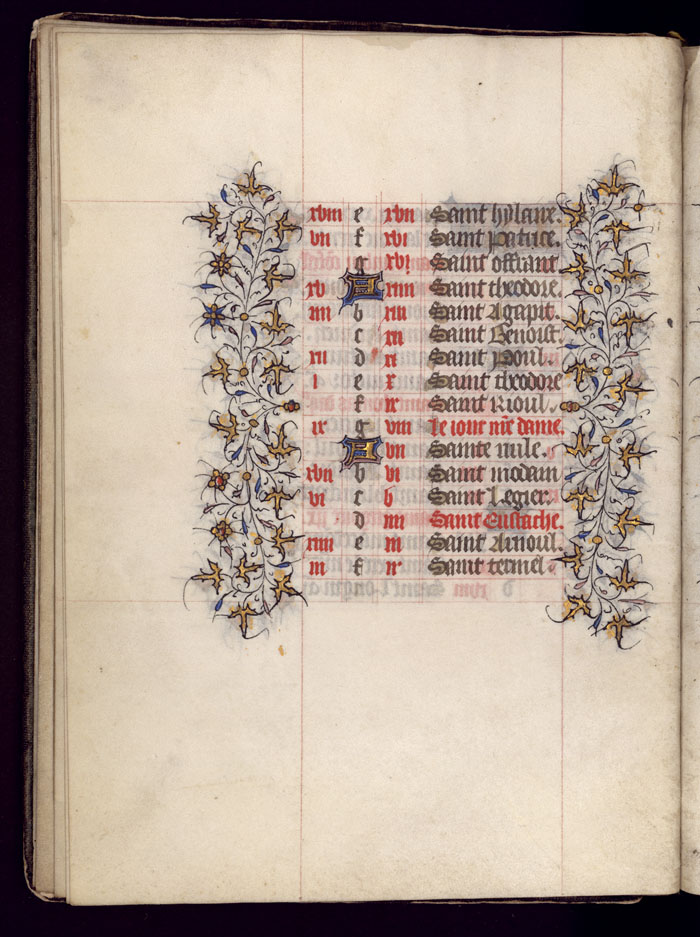 xviii e xvii Saint hylaire.
vii f xvi Saint patrice.
g xvi Saint offrant.
xv A xiiii Saint theodore.
iiii b xiii Saint Agapit.
c xii Saint Benoist.
xii d xi Saint Poul.
i e x Saint theodore
f ix Saint Rioul.
ix g viii Le iour nre dame.
A vii Sainte mile.
xvii b vi Saint modain
vi c v Saint Legier.
d iiii Saint Eustache.
xiiii e iii Saint Arnoul.
iii f ii Saint termel.